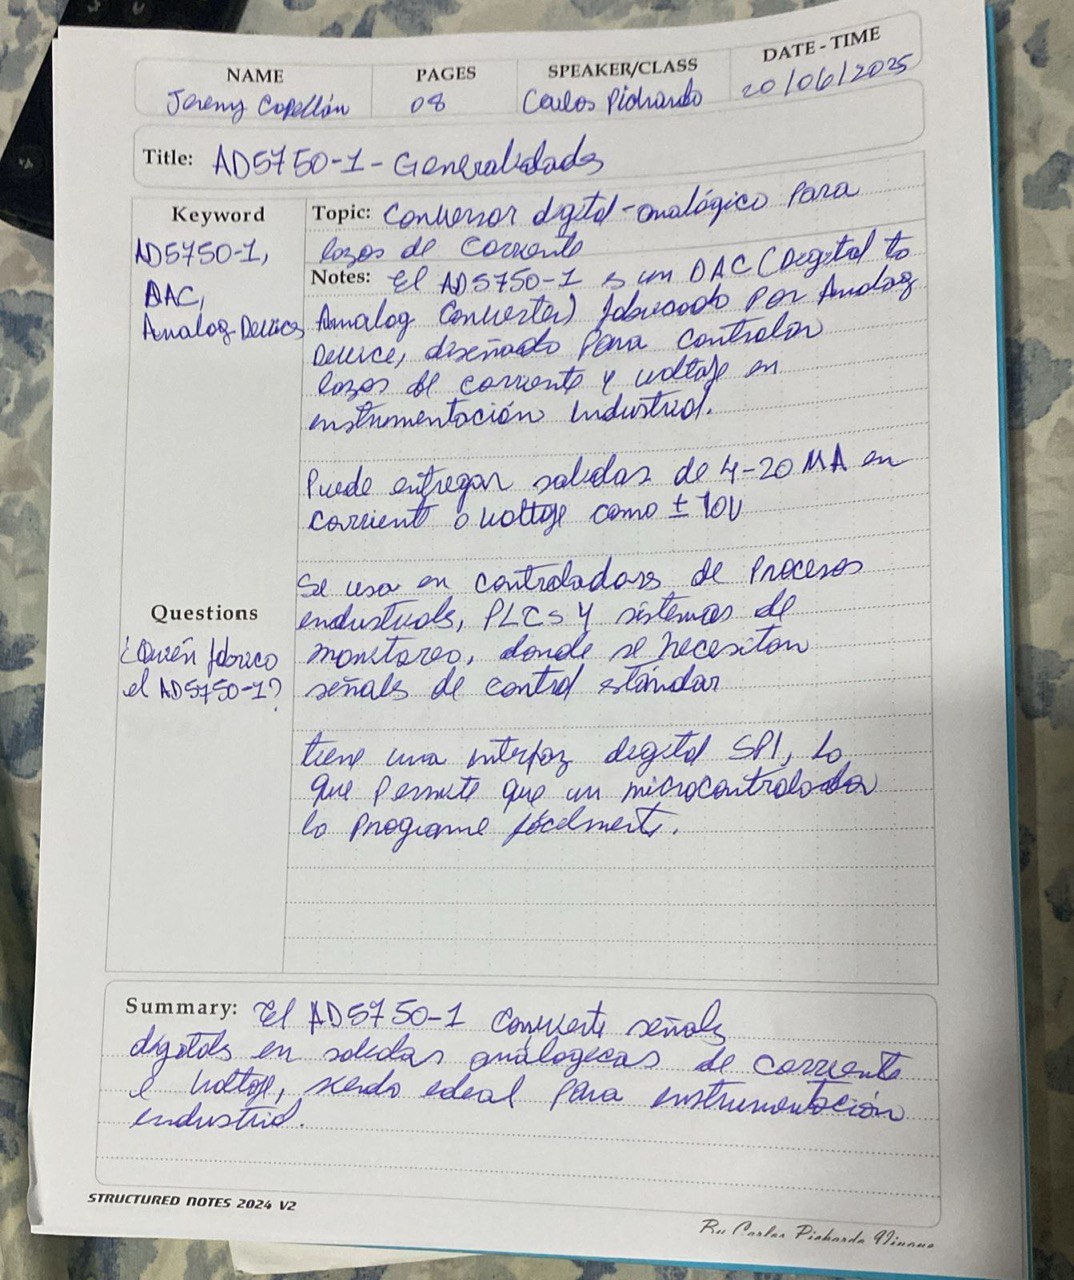 NAME PAGES SPEAKER/CLASS DATE - TIME
Jeremy Capellán 08 Carlos Pichardo 20/06/2025
Title: AD5750-1 - Generalidades
Keyword
AD5750-1,
DAC,
Analog Devices
Topic: Conversor digital-analógico Para
lazos de Corriente
Notes: El AD5750-1 es un DAC (Degital to
Analog Converter) fabricado por Analog
Device, diseñado Para Controlar
lazos de corriente y voltaje en
instrumentación Industrial.
Puede entregar salidas de 4-20 MA en
Corriente o voltaje como ± 10V
Se usa en controladores de Procesos
industriales, PLCs Y sistemas de
monitoreo, donde se necesitan
señales de control estándar
tiene una interfaz digital SPI, Lo
que Permite que un microcontrolador
lo Programe fácilmente.
Questions
¿Quién fabrico
el AD5750-1?
Summary: El AD5750-1 Convierte señales
digitales en salidas análogicas de corriente
e voltaje, siendo ideal Para instrumentación
industrial.
STRUCTURED NOTES 2024 V2
Carlos Pichardo